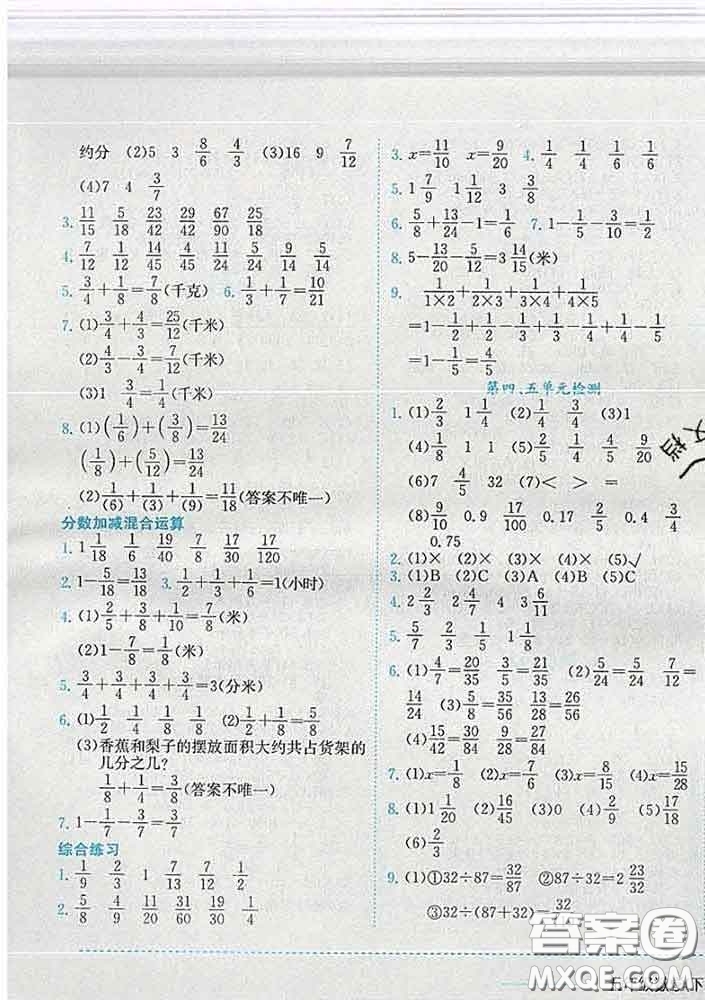 约分 (2)5 3 8/6 4/3 (3)16 9 7/12
(4)7 4 3/7
3. 11/15 5/18 23/42 29/42 67/90 25/18
4. 7/12 1/12 14/45 4/45 5/24 9/14 5/14
5. 3/4+1/8=7/8(千克) 6. 1/3+1/7=10/21
7. (1)3/4+4/3=25/12(千米)
(2)4/3-3/4=7/12(千米)
(3)1 3/4=3/4(千米)
8. (1)(1/6)+(3/8)=13/24
(1/8)+(5/12)=13/24
(2)1/(6)+1/(3)+1/(9)=11/18(答案不唯一)
分数加减混合运算
1. 1 1/18 1/6 19/40 7/8 17/30 17/120
2. 1-5/18=13/18 3. 1/2+1/3+1/6=1(小时)
4. (1)3/8+2/5+1/10=7/8(米)
(2)1-7/8=1/8(米)
5. 3/4+3/4+3/4+3/4=3(分米)
6. (1)1/2 1/4 1/8 1/8 (2)1/2+1/8=5/8
(3)香蕉和梨子的摆放面积大约共占货架的
几分之几?
1/8+1/4=3/8(答案不唯一)
7. 1-1/7-3/7=3/7
综合练习
1. 1/9 2/3 1 7/13 7/12 1/2
2. 5/8 4/9 11/12 31/60 19/30 2/3
3. x=11/10 x=9/20 4. 1/4 1/4 1/6 1/6
5. 1 7/9 1 1/3 3/8
6. 5/8+13/24-1=1/6 7. 1-1/5-3/10=1/2
8. 5-2/3-2/5=3 14/15(米)
9. 1/1×2+1/2×3+1/3×4+1/4×5
=1-1/2+1/2-1/3+1/3-1/4+1/4-1/5
=1-1/5=4/5
第四、五单元检测
1. (1)2/3 1 1/4 (2)1/4 3/4 (3)1
(4)1/8 1 1 (5)2/5 1/4 4/5 9/20
(6)7 4/5 32 (7)< > =
(8)9/10 0.9 17/100 0.17 2/5 0.4 3/4
0.75
2. (1)× (2)× (3)× (4)× (5)√
3. (1)B (2)C (3)A (4)B (5)C
4. 2 2/3 2 4/7 3 6/11
5. 5/7 2/3 1 1 1/8
6. (1)4/7=20/35 3/5=21/35 (2)5/24=5/24 7/12=
14/24 (3)5/8=35/56 13/28=26/56
(4)15/42=30/84 9/28=27/84
7. (1)x=1/8 (2)x=8/15 (3)x=15/28
8. (1)1 1/20 (2)16/45 (3)0 (4)2/9 (5)17/18
(6)2/3
9. (1)①32÷87=32/87 ②87÷32=2 23/32
③32÷(87+32)
答案圈
MXQE.COM